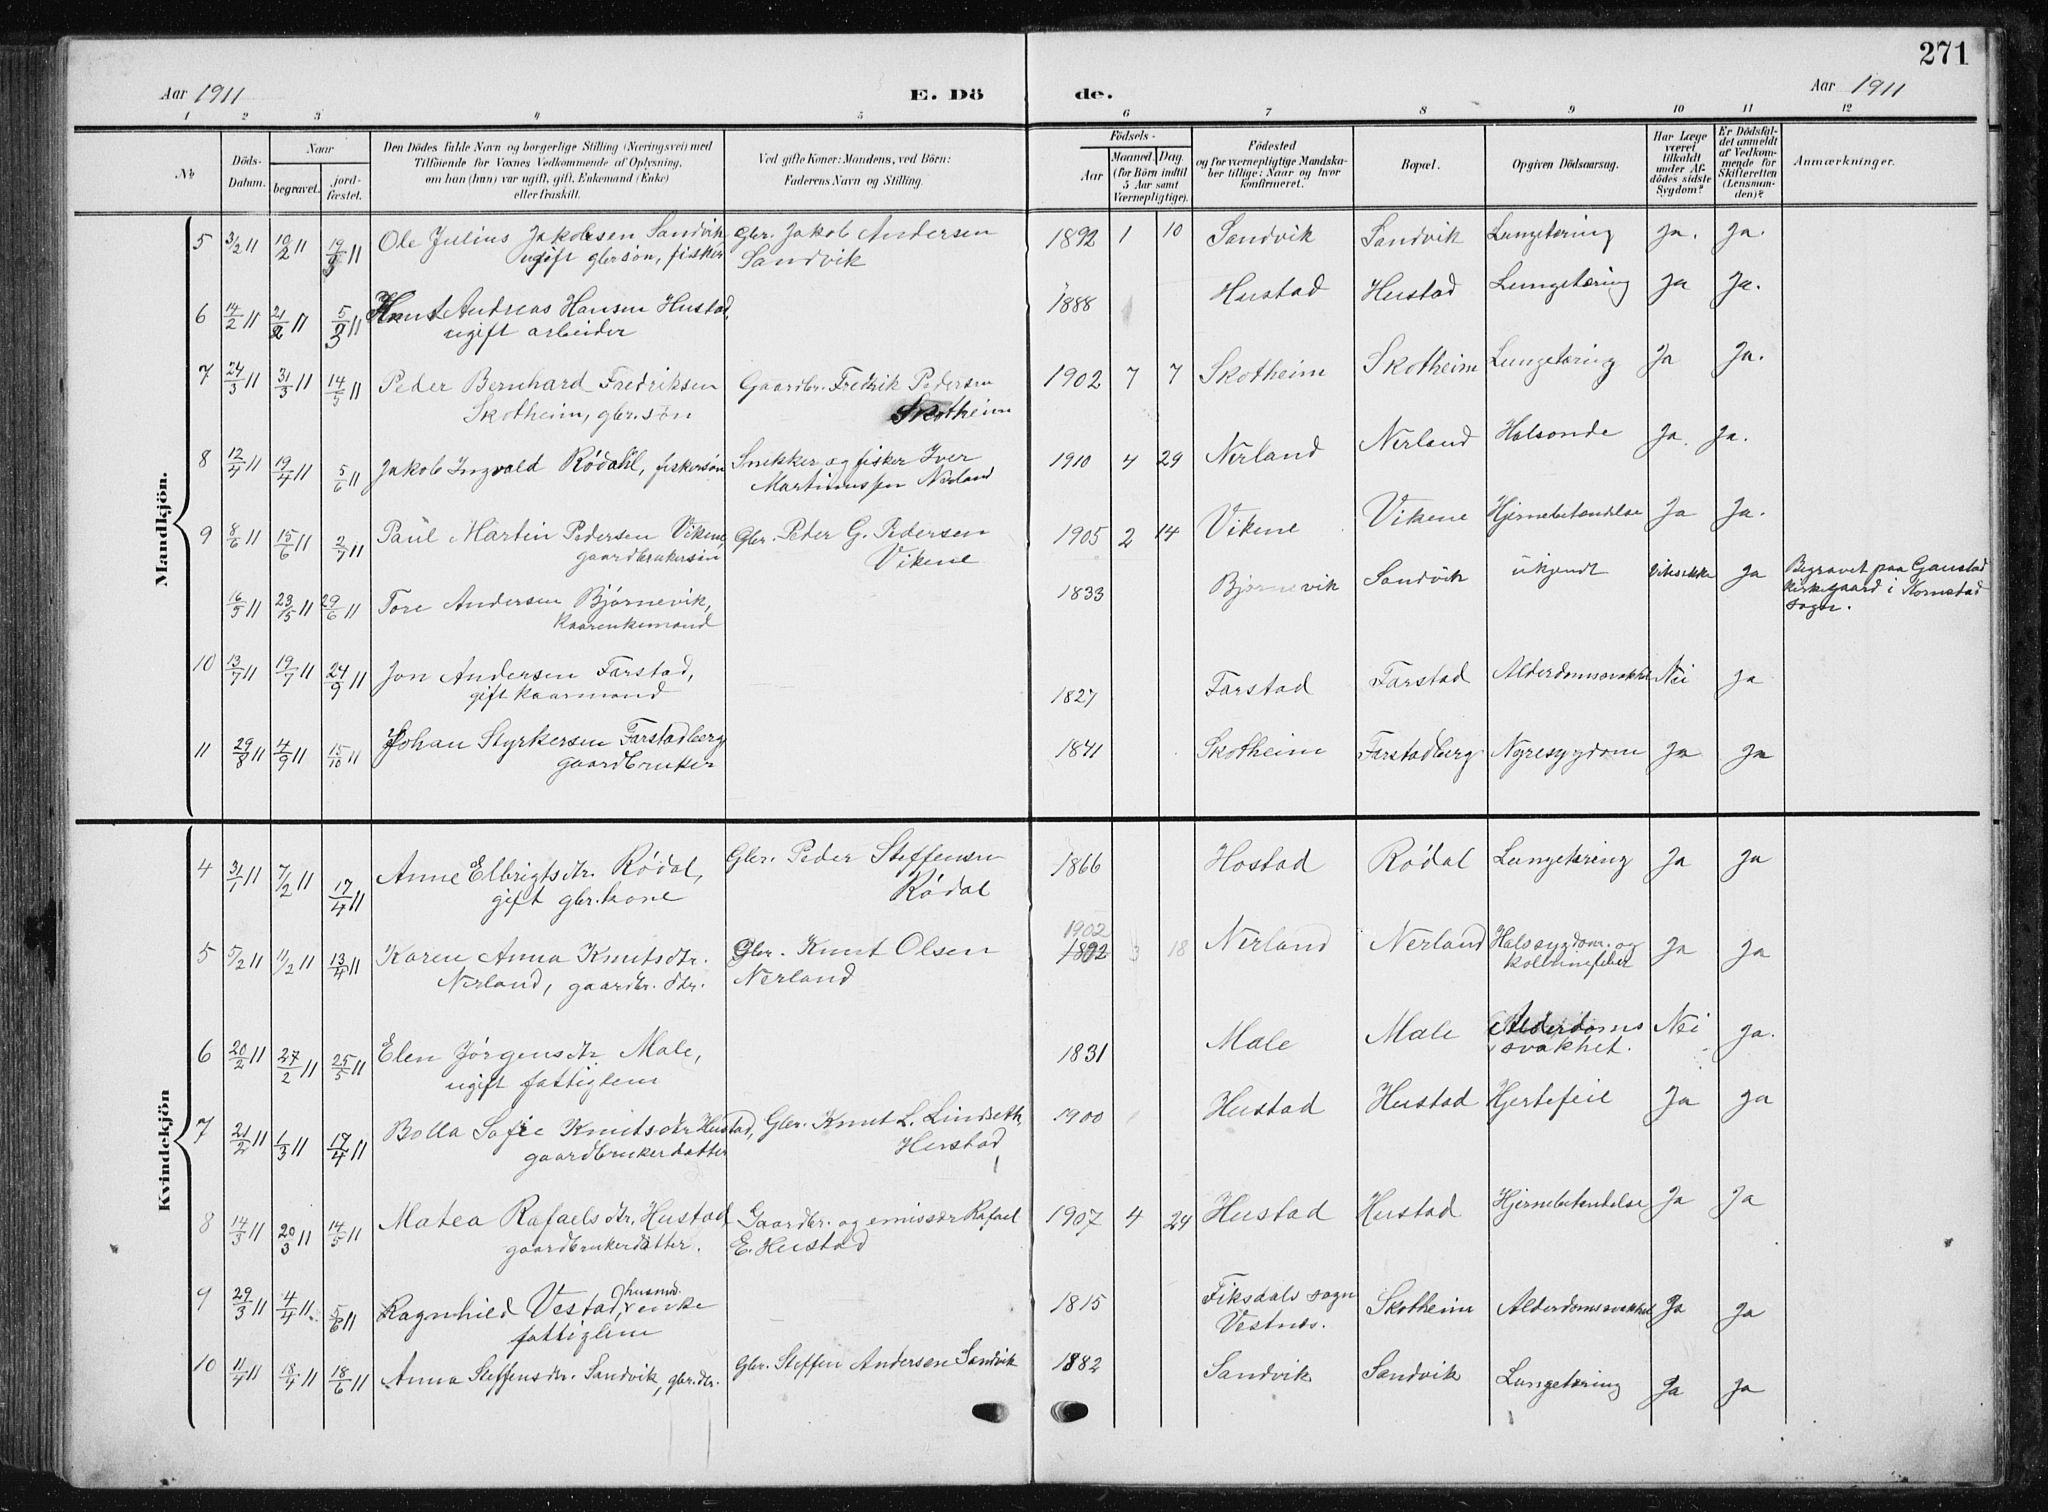 271
Aar 1911 E. Dö de. Aar 1911
1 2 3 4 5 6 7 8 9 10 11 12
No
Döds-Datum.
Naar
begravet. jord-fæstet.
Den Dödes fulde Navn og borgerlige Stilling (Næringsvei) med
Tilföiende for Voxnes Vedkommende af Oplysning,
om han (hun) var ugift, gift, Enkemand (Enke)
eller fraskilt.
Ved gifte Koner: Mandens, ved Börn:
Faderens Navn og Stilling.
Födsels-
Aar
Maaned. Dag.
(for Börn indtil
5 Aar samt
Værnepligtige).
Födested
og for værnepligtige Mandska-
ber tillige: Naar og hvor
konfirmeret.
Bopæl.
Opgiven Dödsaarsag.
Har Læge
været
tilkaldt
under Af-
dödes sidste
Sygdom?
Er Dödsfal-
det anmeldt
af Vedkom-
mende for
Skifteretten
(Lensman-
den)?
Anmærkninger.
Mandkjön.
5 3/2 11 10/2 11 19/3 11 Ole Julius Jakobsen Sandvik Gbr. Jakob Andersen 1892 1 10 Sandvik Sandvik Lungetæring Ja. Ja.
ugift gbr søn, fisker Sandvik
6 14/2 11 21/2 11 5/3 11 Knut Andreas Hansen Hustad, 1888 Hustad Hustad Lungetæring Ja Ja.
ugift arbeider
7 24/3 11 31/3 11 14/5 11 Peder Bernhard Fredriksen Gaardbr. Fredrik Pedersen 1902 7 7 Skotheim Skotheim Lungetæring Ja Ja.
Skotheim, gbr. søn Skotheim
8 12/4 11 19/4 11 5/6 11 Jakob Ingvald Rödahl, fiskersøn Snekker og fisker Iver 1910 4 29 Nerland Nerland Halsonde Ja. Ja.
Martinussen Nerland
9 8/6 11 15/6 11 2/7 11 Paul Martin Pedersen Vikene, Gbr. Peter G. Pedersen 1905 2 14 Vikene Vikene Hjernebetændelse Ja Ja.
gaardbrukersøn Vikene
16/5 11 23/5 11 29/6 11 Tore Andersen Bjørnevik, 1833 Bjørnevik Sandvik ukjendt Vites ikke Ja Begravet paa Gaustad
kaarenkemand kirkegaard i Kornstad
sogn.
10 13/7 11 19/7 11 24/9 11 Jon Andersen Farstad, 1827 Farstad Farstad Alderdomssvakhet Nei Ja
gift kaarmand
11 29/8 11 4/9 11 15/10 11 Johan Styrkersen Farstadberg 1841 Skotheim Farstadberg Nyresygdom Ja Ja
gaardbruker
Kvindekjön
4 31/1 11 7/2 11 17/4 11 Anne Elbrigtsdtr. Rödal, Gbr. Peder Steffensen 1866 Hostad Rödal Lungetæring Ja Ja
gift gbr. kone Rödal
1902
5 5/2 11 11/2 11 13/4 11 Karen Anna Knutsdtr. Gbr. Knut Olsen 1892 3 18 Nerland Nerland Halssygdom og Ja Ja
Nerland, gaardbr. dtr. Nerland
6 20/2 11 27/2 11 25/5 11 Elen Jörgensdtr Male, 1831 Male Male Alderdoms Nei Ja.
ugift fattiglem svakhet.
7 21/2 11 1/3 11 17/4 11 Bolla Sofie Knutsdtr Hustad, Gbr. Knut L. Lindseth, 1900 Hustad Hustad Hjertefeil Ja Ja
gaardbrukerdatter Hustad
8 14/3 11 20/3 11 14/5 11 Matea Rafaelsdtr. Hustad Gaardbr. og emissær Rafael 1907 4 24 Hustad Hustad Hjernebetændelse Ja Ja
gaardbrukerdatter. E. Hustad
9 29/3 11 4/4 11 5/6 11 Ragnhild Vestad, husmds. enke 1815 Fiksdals sogn Skotheim Alderdomssvakhet Ja Ja
fattiglem Vestnes.
10 11/4 11 18/4 11 18/6 11 Anna Steffensdtr. Sandvik, gbr. dtr. Gbr. Steffen Andersen Sandvik 1882 Sandvik Sandvik Lungetæring Ja Ja